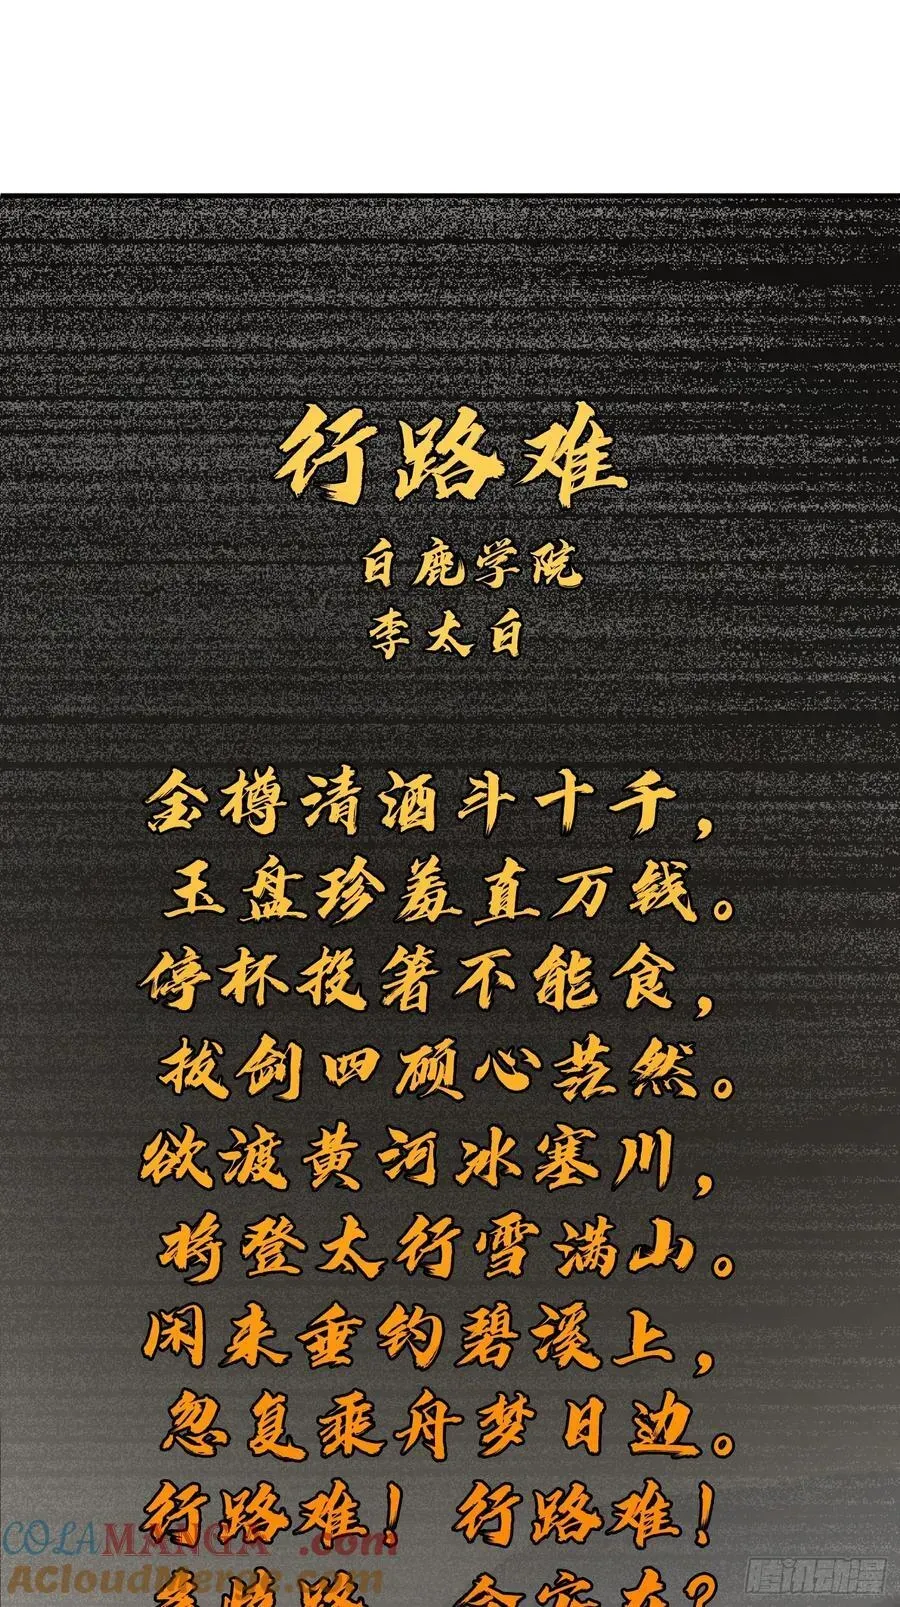 行路难
白鹿学院
李太白
金樽清酒斗十千，
玉盘珍羞直万钱。
停杯投箸不能食，
拔剑四顾心茫然。
欲渡黄河冰塞川，
将登太行雪满山。
闲来垂钓碧溪上，
忽复乘舟梦日边。
行路难！行路难！
多歧路，今安在？
COLAMANGA.com
ACloudMerge.com
腾讯动漫